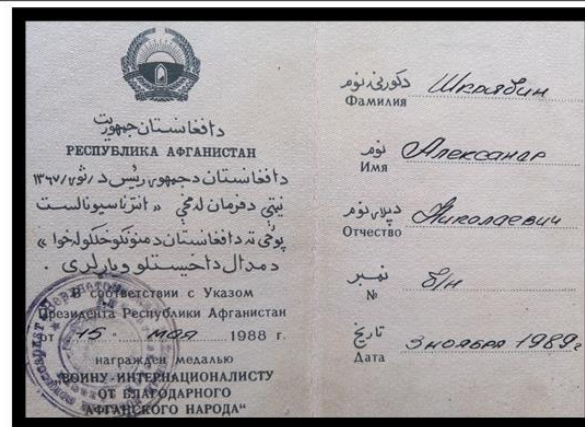 دافغانستان جمهوریت
РЕСПУБЛИКА АФГАНИСТАН
دافغانستان د جمهوری رئیس د /ثور/۱۳۶۷
نېټې د فرمان له مخې « انترناسیونالست
پوځی ته د افغانستان د منونکو خلکو له خوا »
د مدال د اخیستلو وړ بلل
В соответствии с Указом
Президента Республики Афганистан
от 15 мая 1988 г.
награжден медалью
"ВОИНУ-ИНТЕРНАЦИОНАЛИСТУ
ОТ БЛАГОДАРНОГО
АФГАНСКОГО НАРОДА"
دکورنۍ نوم
Фамилия Шкрябин
نوم
Имя Александр
دپلار نوم
Отчество Николаевич
نمبر
№ б/н
تاریخ
Дата 3 ноября 1989г